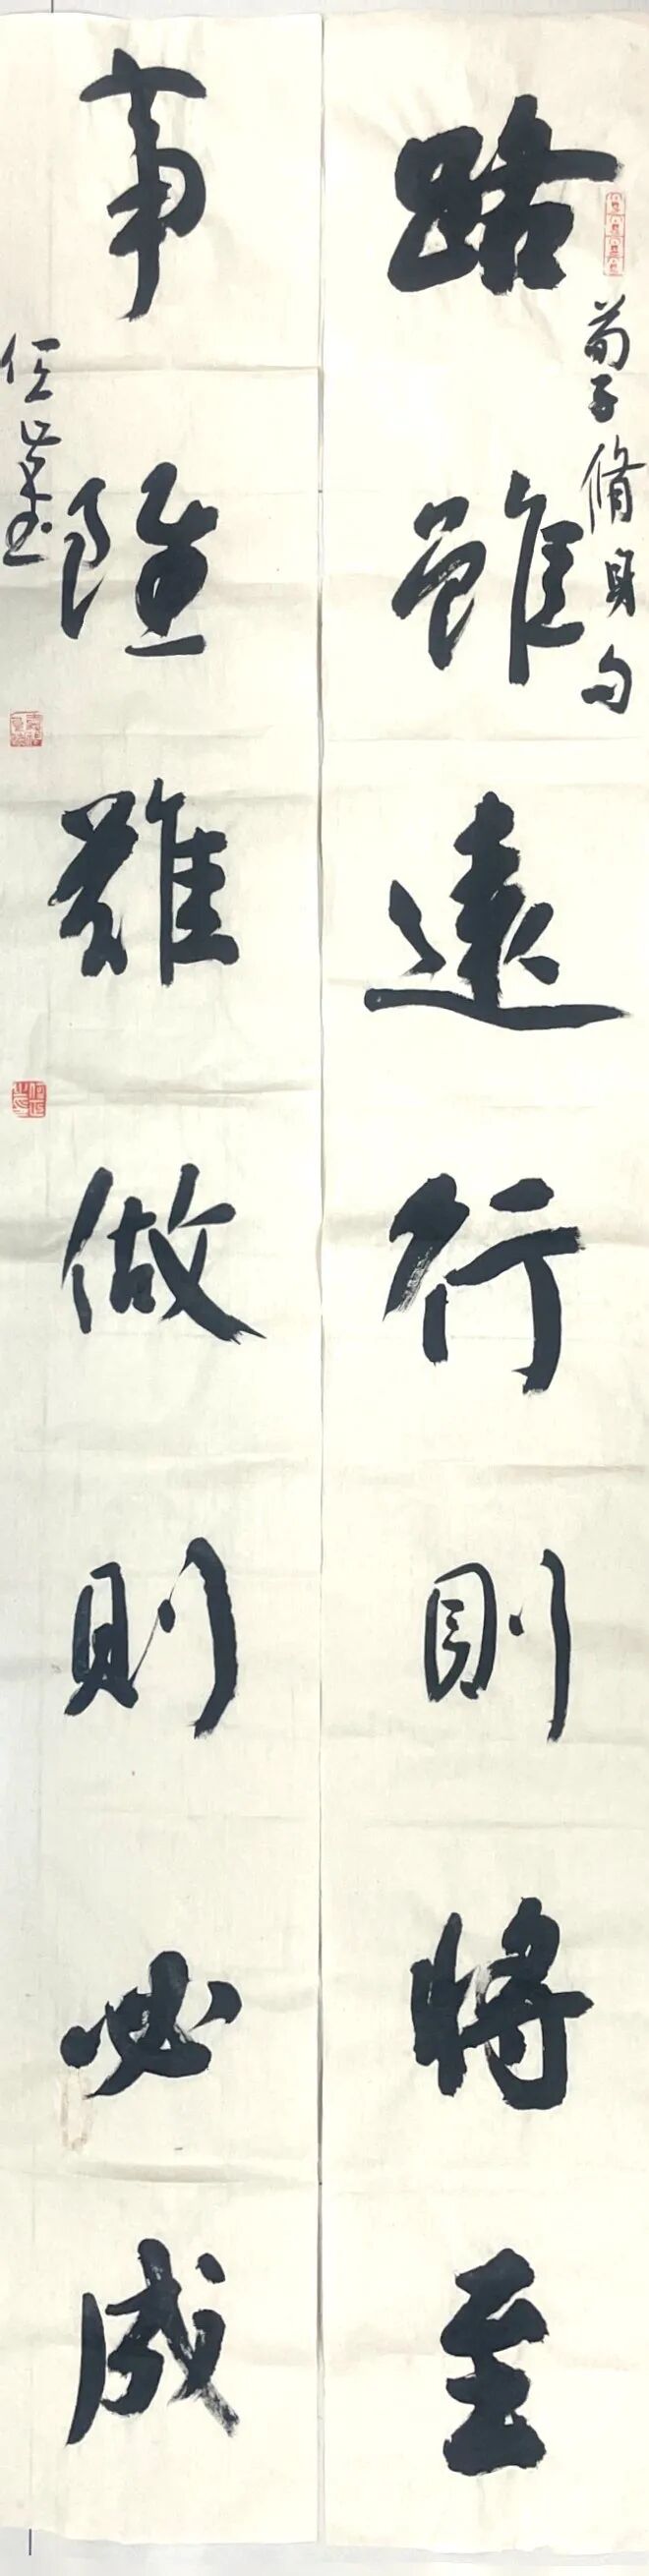 荀子脩身句
路雖遠行則將至
事雖難做則必成